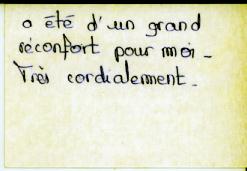 a été d'un grand
réconfort pour moi -
Très cordialement -